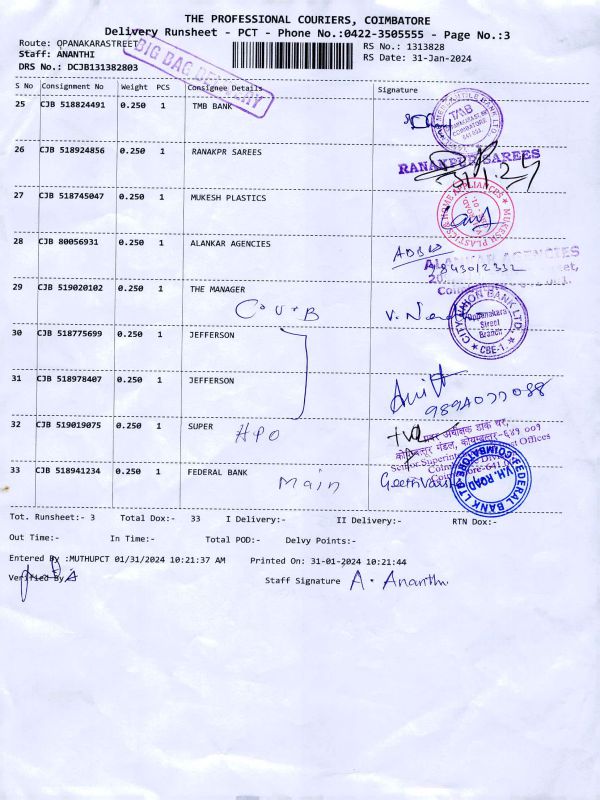 THE PROFESSIONAL COURIERS, COIMBATORE
Delivery Runsheet - PCT - Phone No.:0422-3505555 - Page No.:3
Route: OPANAKARASTREET
RS No.: 1313828
Staff: ANANTHI
RS Date: 31-Jan-2024
DRS No.: DCJB131382803
BIG BAG DELIVERY
S No Consignment No Weight PCS Consignee Details Signature
25 CJB 518824491 0.250 1 TMB BANK
TMB
COIMBATORE
26 CJB 518924856 0.250 1 RANAKPR SAREES
RANAKPUR SAREES
27 CJB 518745047 0.250 1 MUKESH PLASTICS
MUKESH PLASTICS & HOME APPLIANCES
28 CJB 80056931 0.250 1 ALANKAR AGENCIES
ALANKAR AGENCIES
9843012332
29 CJB 519020102 0.250 1 THE MANAGER
CUB
CITY UNION BANK LTD.
Oppanakara
Street
Branch
CBE-1.
30 CJB 518775699 0.250 1 JEFFERSON
31 CJB 518978407 0.250 1 JEFFERSON
9894077088
32 CJB 519019075 0.250 1 SUPER
HPO
प्रवर अधीक्षक डाक घर,
कोयम्बत्तूर मंडल, कोयम्बत्तूर-६४१ ००१
33 CJB 518941234 0.250 1 FEDERAL BANK
Main
FEDERAL BANK LTD
V.H. ROAD
COIMBATORE
Tot. Runsheet:- 3 Total Dox:- 33 I Delivery:- II Delivery:- RTN Dox:-
Out Time:- In Time:- Total POD:- Delvy Points:-
Entered By :MUTHUPCT 01/31/2024 10:21:37 AM Printed On: 31-01-2024 10:21:44
Verified By
Staff Signature A. Ananthi